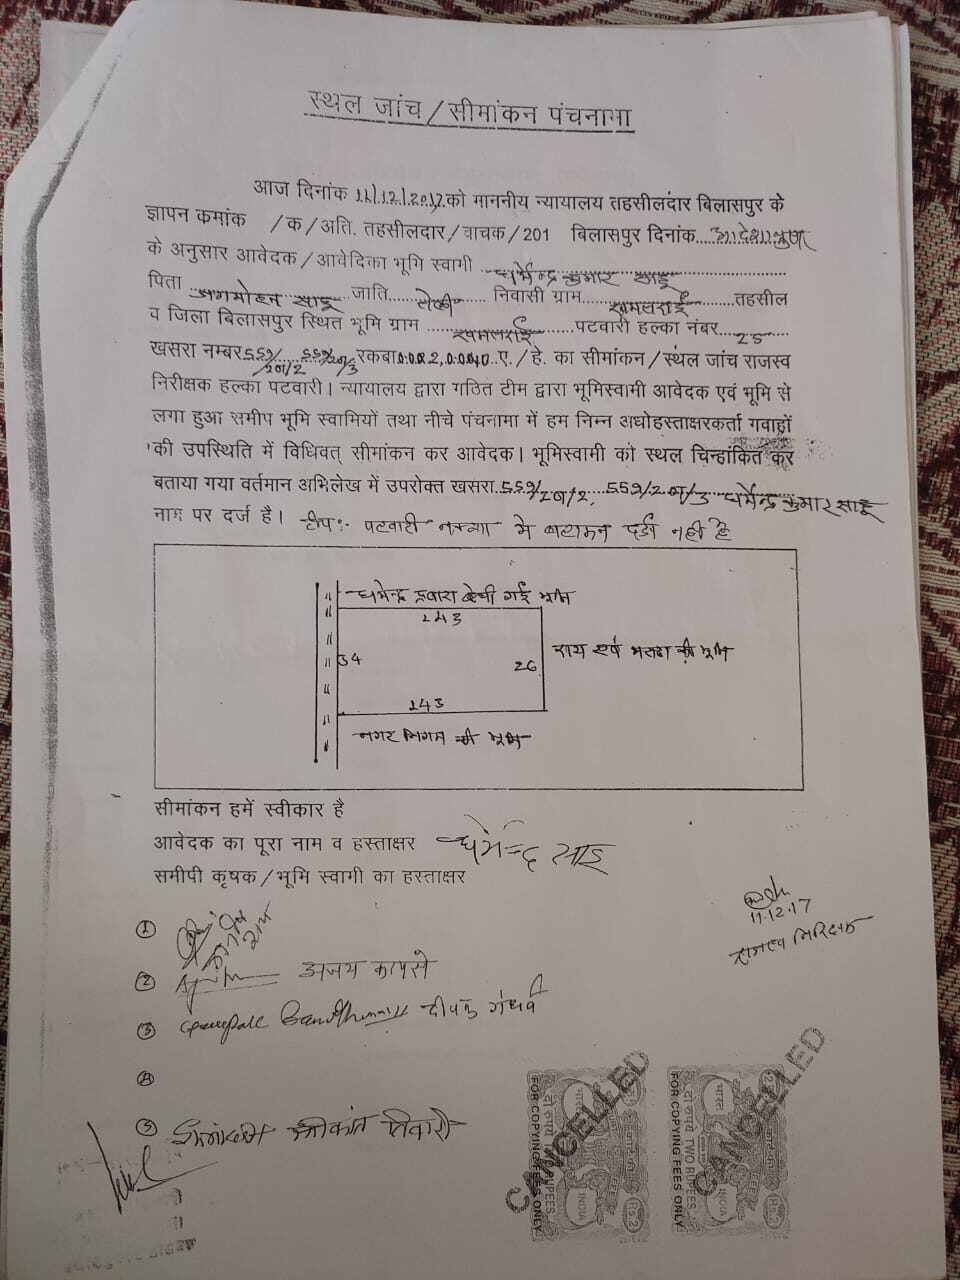 स्थल जांच/सीमांकन पंचनामा
आज दिनांक 11/12/2017 को माननीय न्यायालय तहसीलदार बिलासपुर के
ज्ञापन कमांक /क/अति. तहसीलदार/वाचक/201 बिलासपुर दिनांक....आदेशानुसार
के अनुसार आवेदक/आवेदिका भूमि स्वामी धर्मेन्द्र कुमार साहू
पिता जगमोहन साहू जाति....तेली निवासी ग्राम खमतराई तहसील
व जिला बिलासपुर स्थित भूमि ग्राम खमतराई पटवारी हल्का नंबर 25
खसरा नम्बर 559/ 559/ रकबा 0.002, 0.0040 ए./हे. का सीमांकन/स्थल जांच राजस्व
निरीक्षक हल्का पटवारी। न्यायालय द्वारा गठित टीम द्वारा भूमिस्वामी आवेदक एवं भूमि से
लगा हुआ समीप भूमि स्वामियों तथा नीचे पंचनामा में हम निम्न अधोहस्ताक्षरकर्ता गवाहों
की उपस्थिति में विधिवत् सीमांकन कर आवेदक। भूमिस्वामी को स्थल चिन्हांकित कर
बताया गया वर्तमान अभिलेख में उपरोक्त खसरा 559/ 559/ धर्मेन्द्र कुमार साहू
नाम पर दर्ज है। टीप:- पटवारी नक्शा में बटांकन दर्ज नहीं है
धर्मेन्द्र द्वारा बेची गई भूमि
243
34
26
की भूमि
243
नगर निगम की भूमि
सीमांकन हमें स्वीकार है
आवेदक का पूरा नाम व हस्ताक्षर धर्मेन्द्र साहू
समीपी कृषक/भूमि स्वामी का हस्ताक्षर
11.12.17
राजस्व निरिक्षक
①
② अजय कापसे
③ दीपक गंधर्व
④
⑤ श्रीकांत तिवारी
CANCELLED
भारत
दो रुपये TWO RUPEES
FOR COPYING FEES ONLY
INDIA
Rs.2
CANCELLED
भारत
दो रुपये TWO RUPEES
FOR COPYING FEES ONLY
INDIA
Rs.2